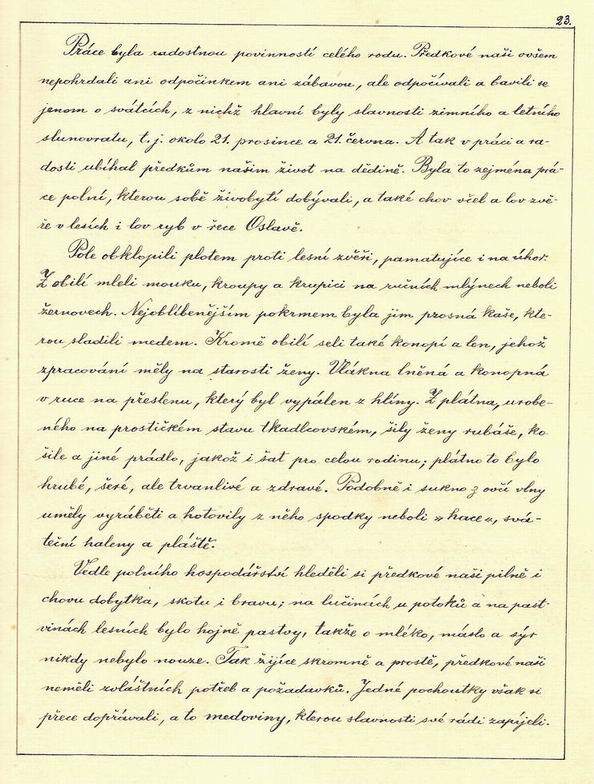 23.
Práce byla radostnou povinností celého rodu. Předkové naši ovšem
nepohrdali ani odpočinkem ani zábavou, ale odpočívali a bavili se
jenom o svátcích, z nichž hlavní byly slavnosti zimního a letního
slunovratu, t. j. okolo 21. prosince a 21. června. A tak v práci a ra-
dosti ubíhal předkům našim život na dědině. Byla to zejména prá-
ce polní, kterou sobě živobytí dobývali, a také chov včel a lov zvě-
ře v lesích i lov ryb v řece Oslavě.
Pole obklopili plotem proti lesní zvěři, pamatujíce i na úhor.
Z obilí mleli mouku, kroupy a krupici na ručních mlýnech neboli
žernovech. Nejoblíbenějším pokrmem byla jim prosná kaše, kte-
rou sladili medem. Kromě obilí seli také konopí a len, jehož
zpracování měly na starosti ženy. Vlákna lněná a konopná
v ruce na přeslenu, který byl vypálen z hlíny. Z plátna, urobe-
ného na prostičkém stavu tkadlcovském, šily ženy rubáše, ko
šile a jiné prádlo, jakož i šat pro celou rodinu; plátno to bylo
hrubé, šeré, ale trvanlivé a zdravé. Podobně i sukno z ovčí vlny
uměly vyráběti a hotovily z něho spodky neboli „hace", svá-
teční haleny a pláště.
Vedle polního hospodářství hleděli si předkové naši pilně i
chovu dobytka, skotu i bravu; na lučinách u potoků a na past-
vinách lesních bylo hojně pastvy, takže o mléko, máslo a sýr
nikdy nebylo nouze. Tak žijíce skromně a prostě, předkové naši
neměli zvláštních potřeb a požadavků. Jedné pochoutky však si
přece dopřávali, a to medoviny, kterou slavnosti své rádi zapíjeli.